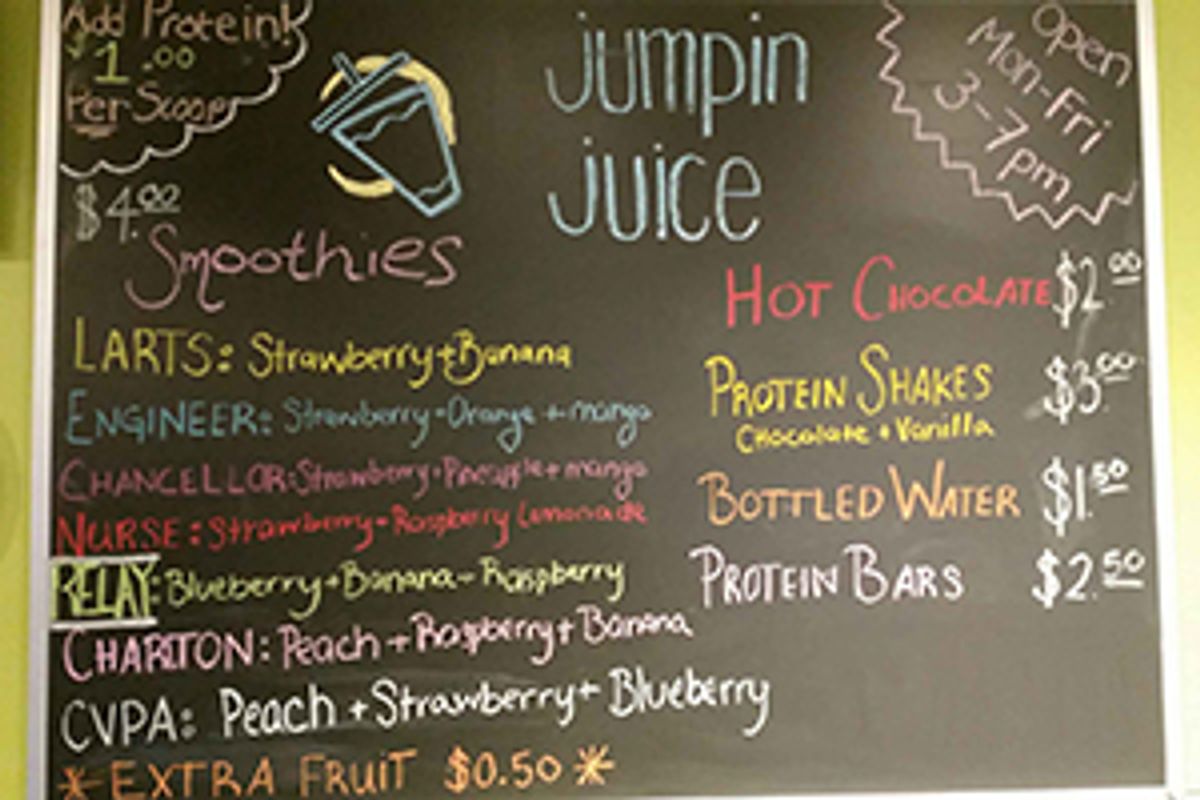 Add Protein!
$1.00
Per Scoop
Jumpin
Juice
Open
Mon-Fri
3-7pm
$4.00
Smoothies
LARTS: Strawberry+Banana
ENGINEER: Strawberry+Orange+mango
CHANCELLOR: Strawberry+Pineapple+mango
NURSE: Strawberry+Raspberry Lemonade
RELAY: Blueberry+Banana+Raspberry
CHARLTON: Peach+Raspberry+Banana
CVPA: Peach+Strawberry+Blueberry
*EXTRA FRUIT $0.50*
HOT CHOCOLATE $2.00
PROTEIN SHAKES $3.00
Chocolate + Vanilla
BOTTLED WATER $1.50
PROTEIN BARS $2.50